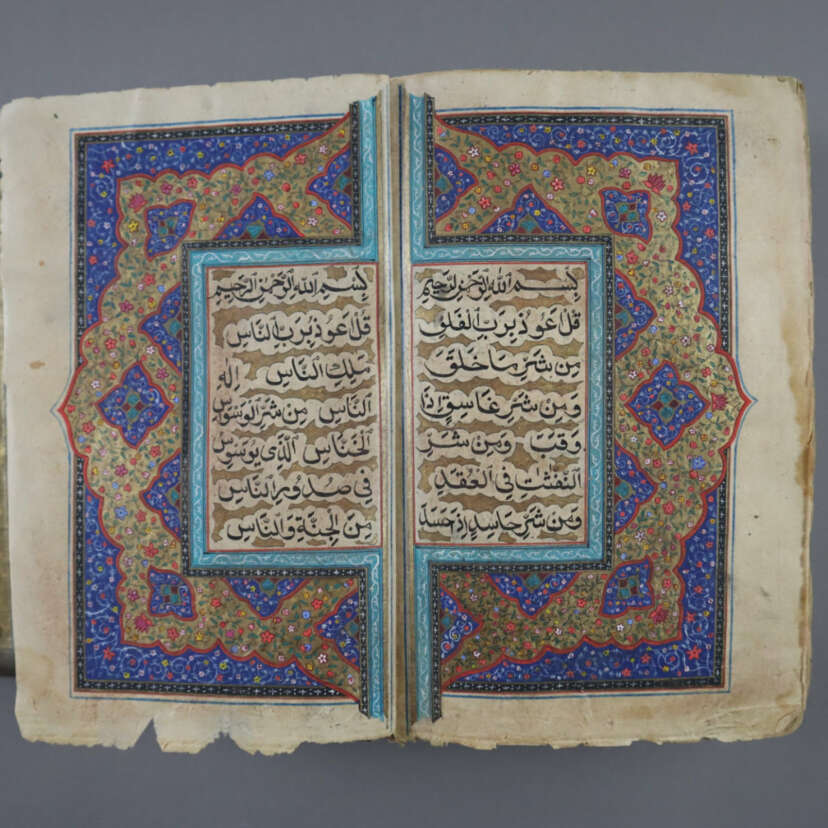 بسم الله الرحمن الرحيم
قل اعوذ برب الفلق
من شر ما خلق
ومن شر غاسق اذا
وقب ومن شر
النفثت في العقد
ومن شر حاسد اذ احسد
بسم الله الرحمن الرحيم
قل اعوذ برب الناس
ملك الناس اله
الناس من شر الوسوس
الخناس الذي يوسوس
في صدور الناس
من الجنة والناس